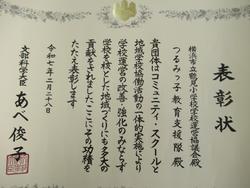 表彰状
横浜市立鶴見小学校学校運営協議会殿
つるみっ子教育支援隊 殿
貴団体はコミュニティ・スクールと
地域学校協働活動の一体的実施により
学校運営の改善・強化のみならず
学校を核とした地域づくりにも多大の
貢献をされましたここにその功績を
たたえ表彰します
令和七年二月二十八日
文部科学大臣 あべ俊子